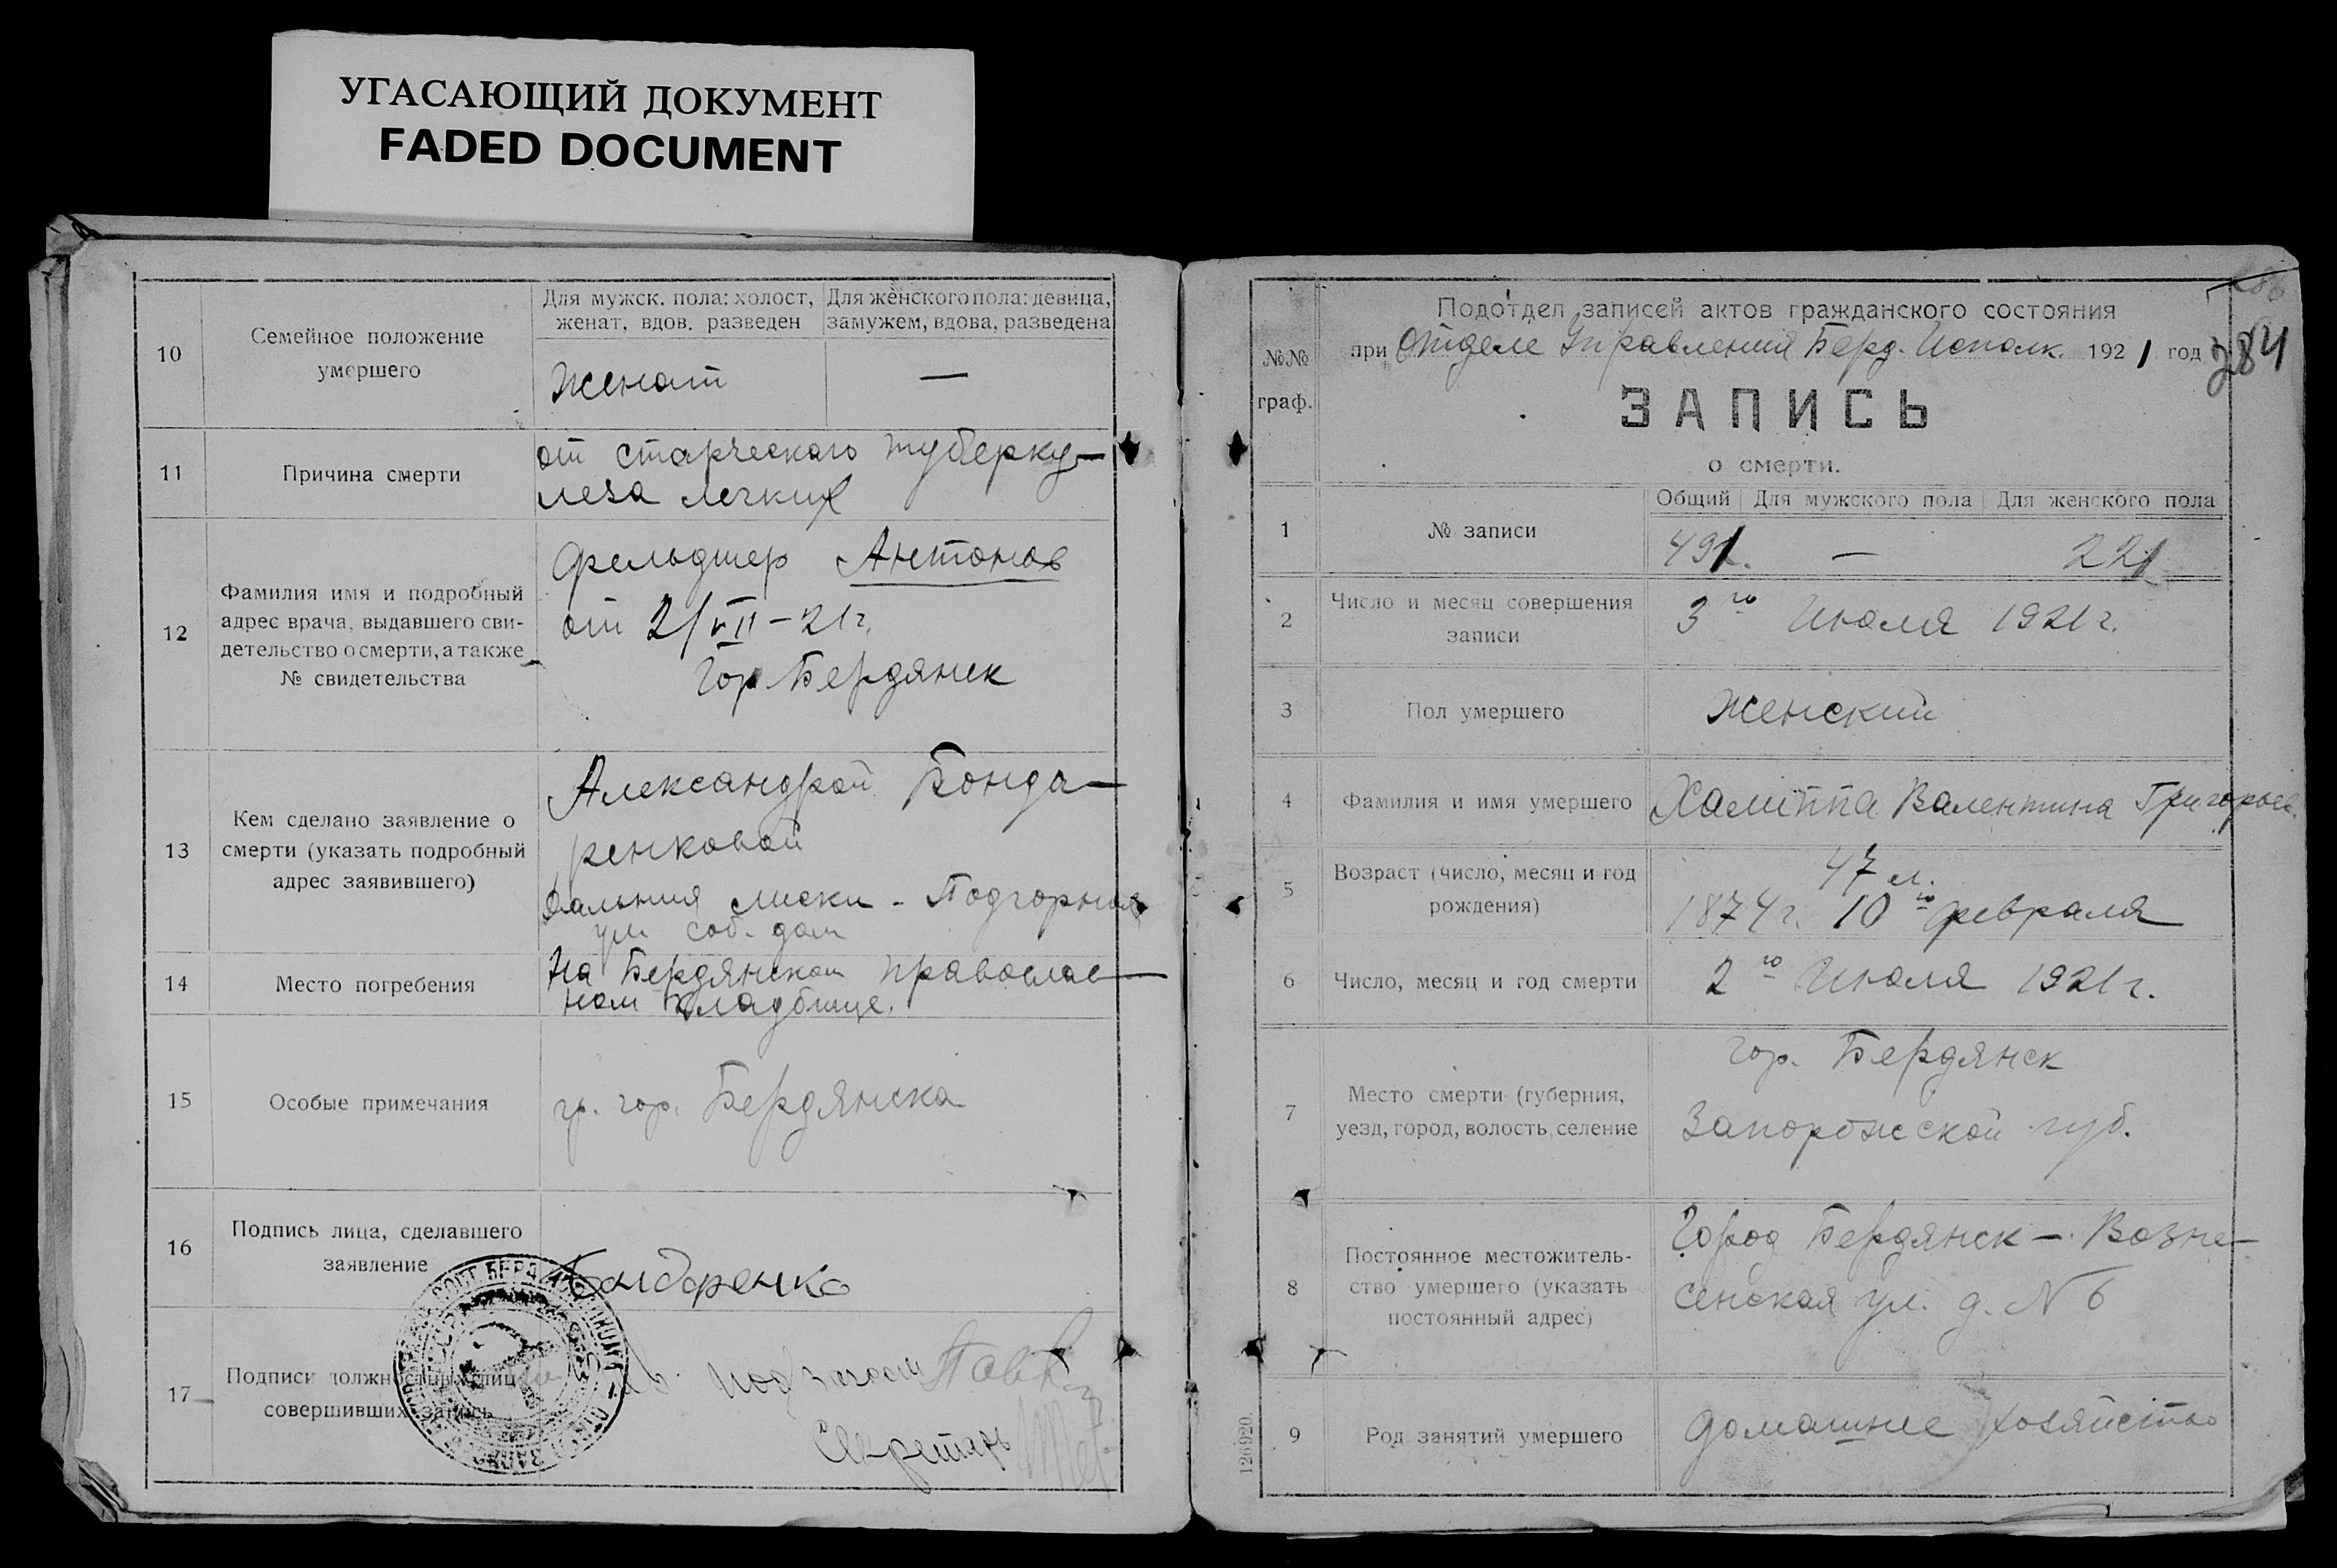 УГАСАЮЩИЙ ДОКУМЕНТ
FADED DOCUMENT
10
Семейное положение
умершего
Для мужск. пола: холост,
женат, вдов. разведен
Для женского пола: девица,
замужем, вдова, разведена
Женат
—
11
Причина смерти
от старческого туберку-
леза легких
12
Фамилия имя и подробный
адрес врача, выдавшего сви-
детельство о смерти, а также
№ свидетельства
фельдшер Антонов
от 2/VII-21г.
гор Бердянск
13
Кем сделано заявление о
смерти (указать подробный
адрес заявившего)
Александрой Бонда-
ренковой
Дальния лиски - Подгорная
ул. соб. дом
14
Место погребения
На Бердянском православ-
ном кладбище.
15
Особые примечания
гр. гор. Бердянска
16
Подпись лица, сделавшего
заявление
Бондаренко
17
Подписи должностных лиц
совершивших запись
Секретарь
№№
граф.
Подотдел записей актов гражданского состояния
при Отделе Управления Берд. Исполк. 1921 год
284
ЗАПИСЬ
о смерти.
1
№ записи
Общий Для мужского пола Для женского пола
491. — 221
2
Число и месяц совершения
записи
3го Июля 1921г.
3
Пол умершего
Женский
4
Фамилия и имя умершего
Халиппа Валентина Григорьев.
5
Возраст (число, месяц и год
рождения)
47 л.
1874г. 10го февраля
6
Число, месяц и год смерти
2го Июля 1921г.
7
Место смерти (губерния,
уезд, город, волость, селение
гор. Бердянск
Запорожской губ.
8
Постоянное местожитель-
ство умершего (указать
постоянный адрес)
Город Бердянск - Возне-
сенская ул. д. № 6
9
Род занятий умершего
домашнее хозяйство
126920.